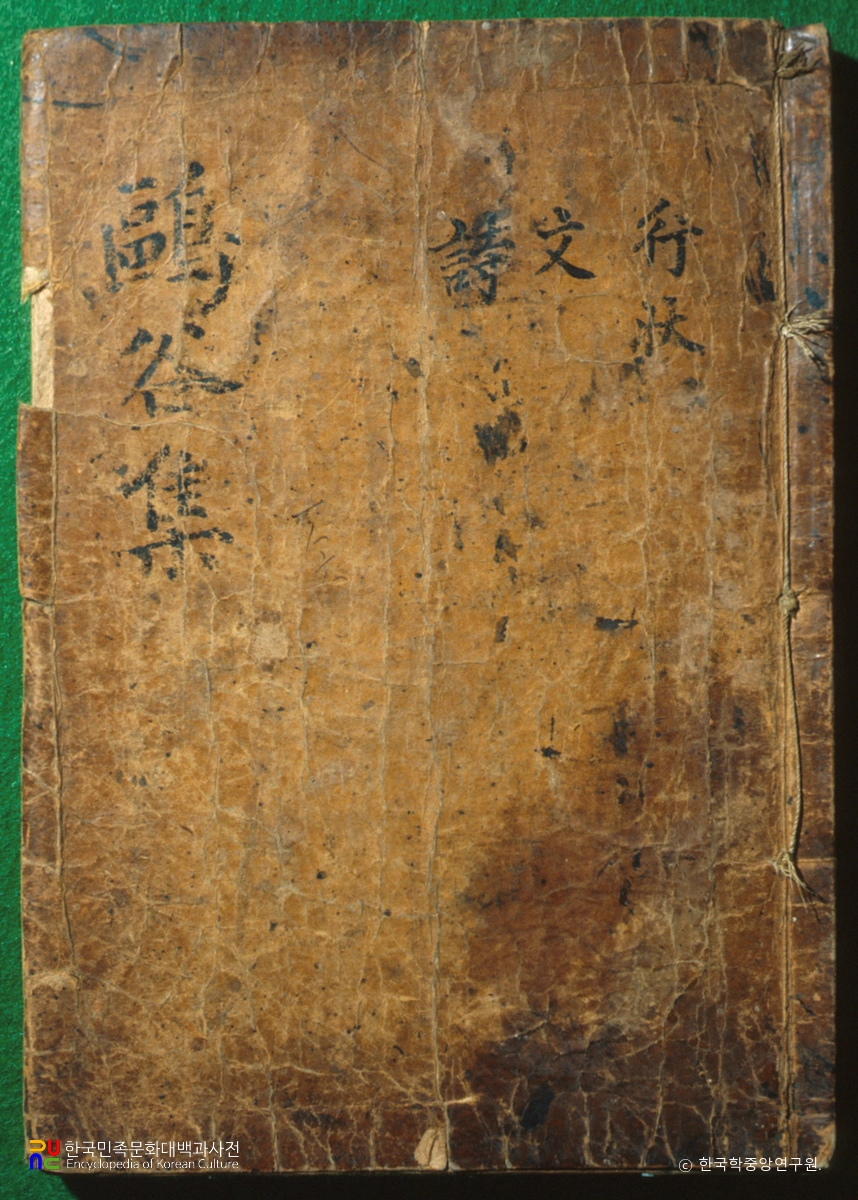 行狀
文
詩
鷗谷集
한국민족문화대백과사전
Encyclopedia of Korean Culture
ⓒ 한국학중앙연구원.